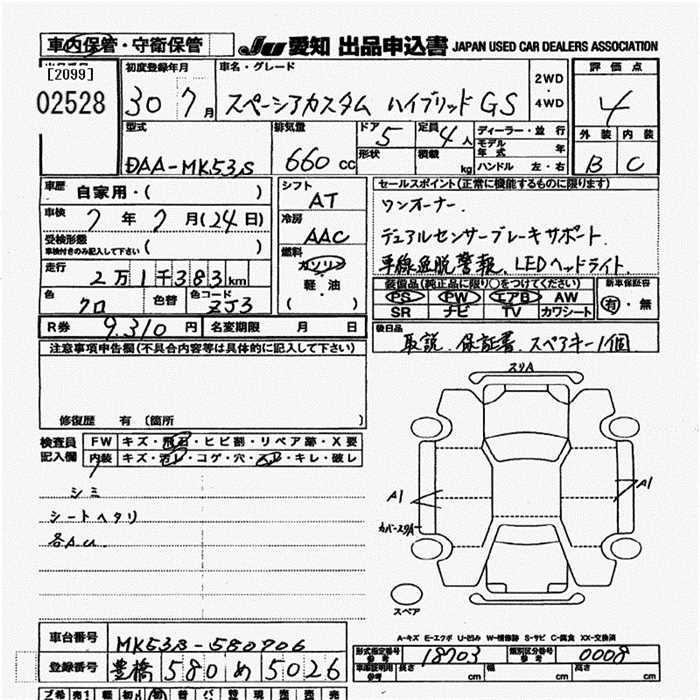 車内保管・守衛保管
JU 愛知 出品申込書 JAPAN USED CAR DEALERS ASSOCIATION
[2099]
02528
初度登録年月
30 7月
車名・グレード
スペーシアカスタム ハイブリッド GS
2WD
4WD
評価点
4
外装 内装
B C
型式
DAA-MK53S
排気量
660 cc
ドア 5
形状
定員 4人
積載 kg
ディーラー・並行
モデル年式 年
ハンドル 左・右
車歴 自家用・( )
車検 7年7月(24日)
受検形態
車検付きのみ記入して下さい ( )
走行 2万1千383km
色 クロ 色替 色コード ZJ3
R券 9.310円 名変期限 月 日
シフト
AT
冷房
AAC
燃料
ガソリン
軽・油
( )
セールスポイント(正常に機能するものに限ります)
ワンオーナー.
デュアルセンサーブレーキサポート.
車線逸脱警報. LEDヘッドライト.
装備品(純正品に限り○をつけてください)
PS PW エアB AW
SR ナビ TV カワシート
新車保証書
有・無
後日品
取説. 保証書. スペアキー1個
注意事項申告欄(不具合内容等は具体的に記入して下さい)
修復歴 有 〔箇所 〕
検査員記入欄
FW キズ・飛石・ヒビ割・リペア跡・X要
内装 キズ・汚レ・コゲ・穴・スレ・キレ・破レ
シミ
シートヘタリ
各AU.
スリA
A1
A1
カバースリA
スペア
A-キズ E-エクボ U-凹み W-補修跡 S-サビ C-腐食 XX-交換済
車台番号 MK53S-580906
登録番号 豊橋 580 め 5026
型式指定番号 参考 18703 類別区分番号 参考 0008
車庫証明用 参考 長さ cm 幅 cm 高さ cm